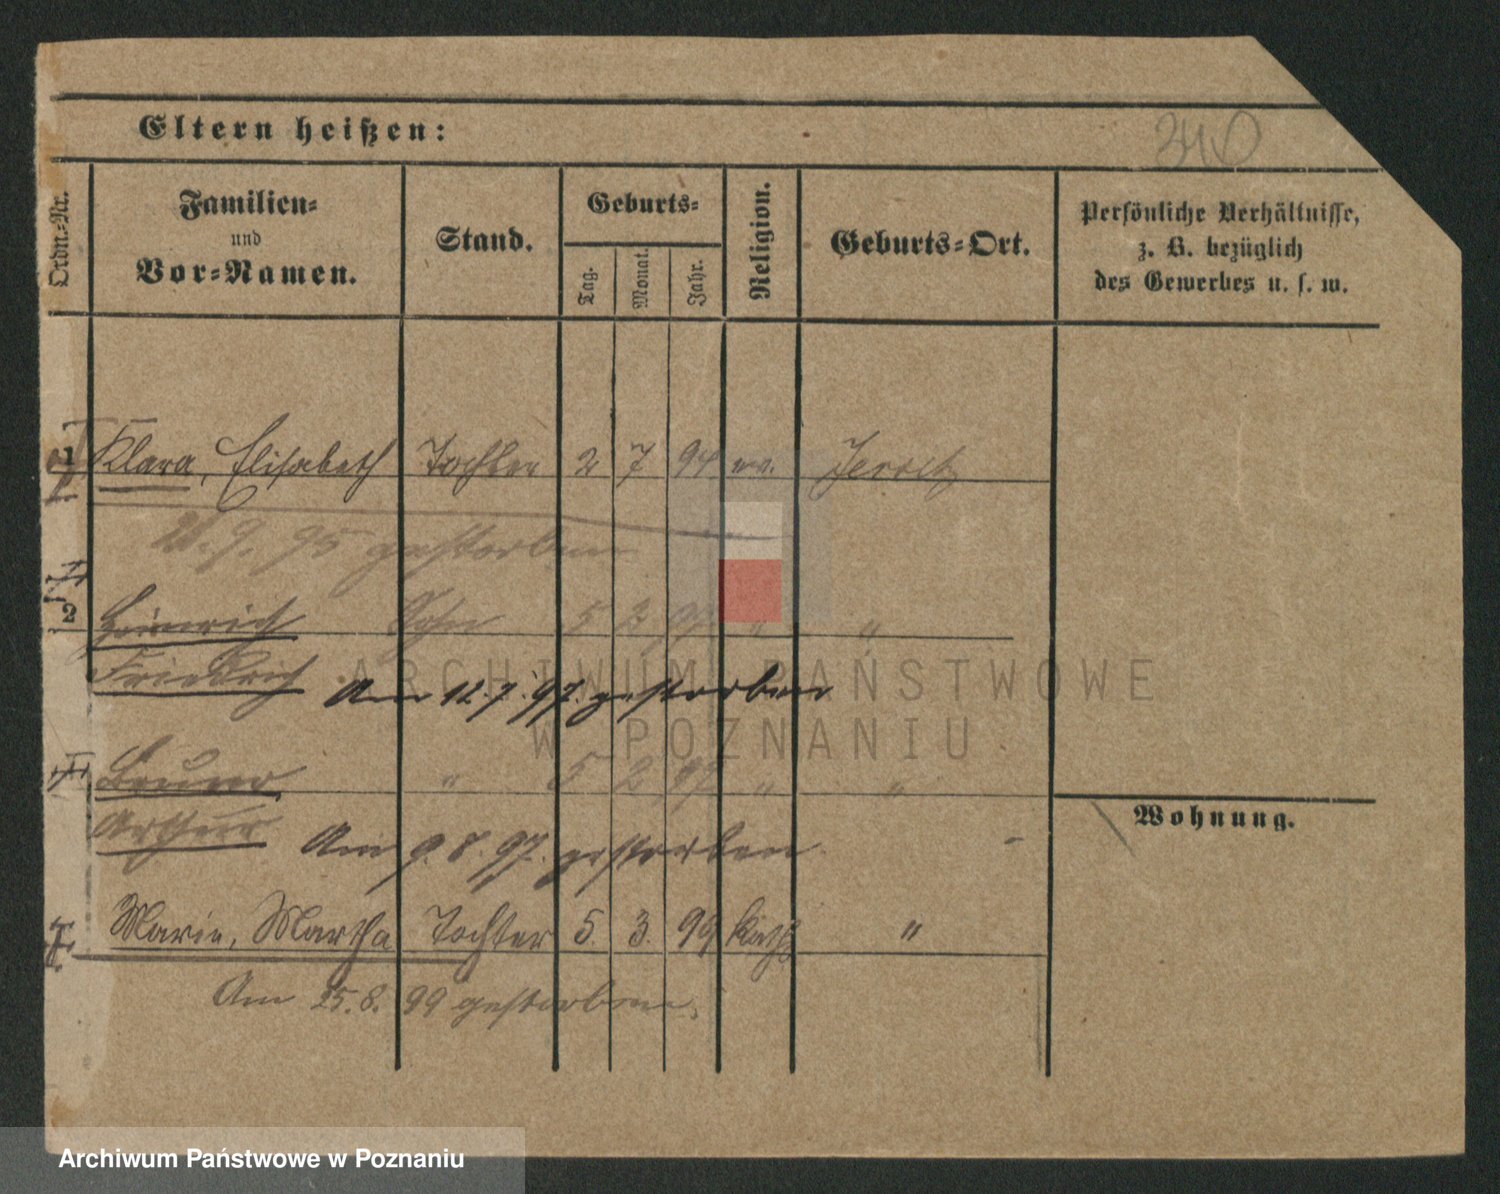 Eltern heißen:
340
Ordn.-Nr.
Familien-
und
Vor-Namen.
Stand.
Geburts-
Tag.
Monat.
Jahr.
Religion.
Geburts-Ort.
Persönliche Verhältnisse,
z. B. bezüglich
des Gewerbes u. s. w.
1 Klara, Elisabeth Tochter 2 7 94 ev. Jersitz
9. 95 gestorben
2 Heinrich Sohn 5 2 97 " "
Friedrich
Am 12.7.97. gestorben
ARCHIWUM PAŃSTWOWE
W POZNANIU
Bruno " 5 2 97 " "
Arthur
Am 9.8.97. gestorben
Wohnung.
Marie, Martha Tochter 5. 3. 99 kath "
Am 25.8.99 gestorben.
Archiwum Państwowe w Poznaniu